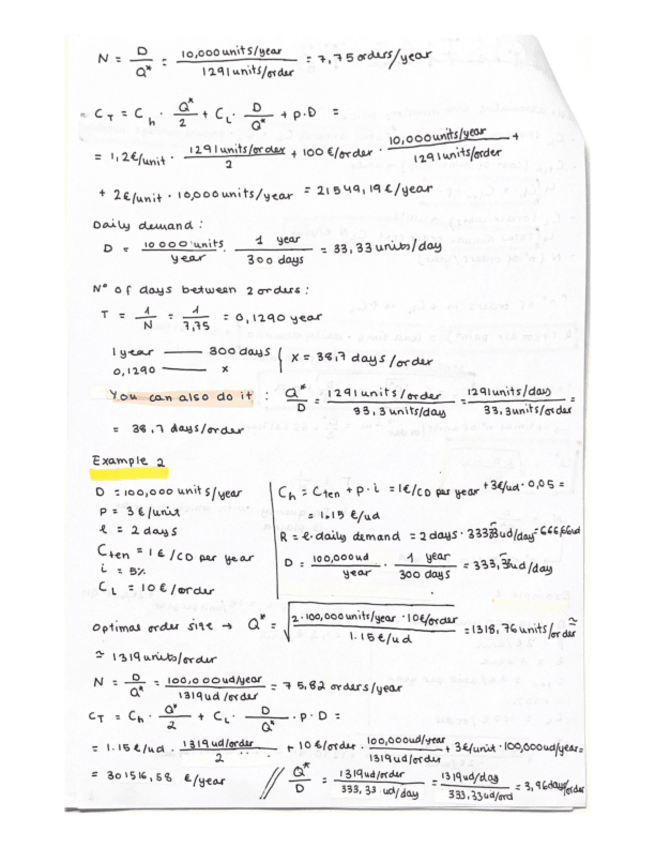 N = D/Q* = 10,000 units/year / 1291 units/order = 7,75 orders/year
C_T = C_h · Q*/2 + C_L · D/Q* + p·D =
= 1,2€/unit · 1291 units/order / 2 + 100 €/order · 10,000 units/year / 1291 units/order +
+ 2€/unit · 10,000 units/year = 21549,19 €/year
Daily demand:
D = 10000 units / year · 1 year / 300 days = 33,33 units/day
Nº of days between 2 orders:
T = 1/N = 1/7,75 = 0,1290 year
1 year —— 300 days
0,1290 —— x
x = 38,7 days/order
You can also do it : Q*/D = 1291 units/order / 33,3 units/day = 1291 units/day / 33,3 units/order =
= 38,7 days/order
Example 2
D = 100,000 units/year
P = 3 €/unit
l = 2 days
Cten = 1 € /CD per year
i = 5%
C_L = 10 € /order
C_h = Cten + p·i = 1€/CD per year + 3€/ud · 0,05 =
= 1.15 €/ud
R = l · daily demand = 2 days · 333,33 ud/day = 666,66ud
D = 100,000ud / year · 1 year / 300 days = 333,3 ud/day
Optimal order size → Q* = √(2·100,000 units/year · 10€/order / 1.15 €/ud) = 1318,76 units/order ≅
≅ 1319 units/order
N = D/Q* = 100,000 ud/year / 1319 ud/order = 75,82 orders/year
C_T = C_h · Q*/2 + C_L · D/Q* · P · D =
= 1.15 €/ud · 1319 ud/order / 2 + 10 €/order · 100,000ud/year / 1319 ud/order + 3€/unit · 100,000ud/year =
= 301516,58 €/year // Q*/D = 1319 ud/order / 333,33 ud/day = 1319 ud/day / 333,33 ud/ord = 3,96 days/order